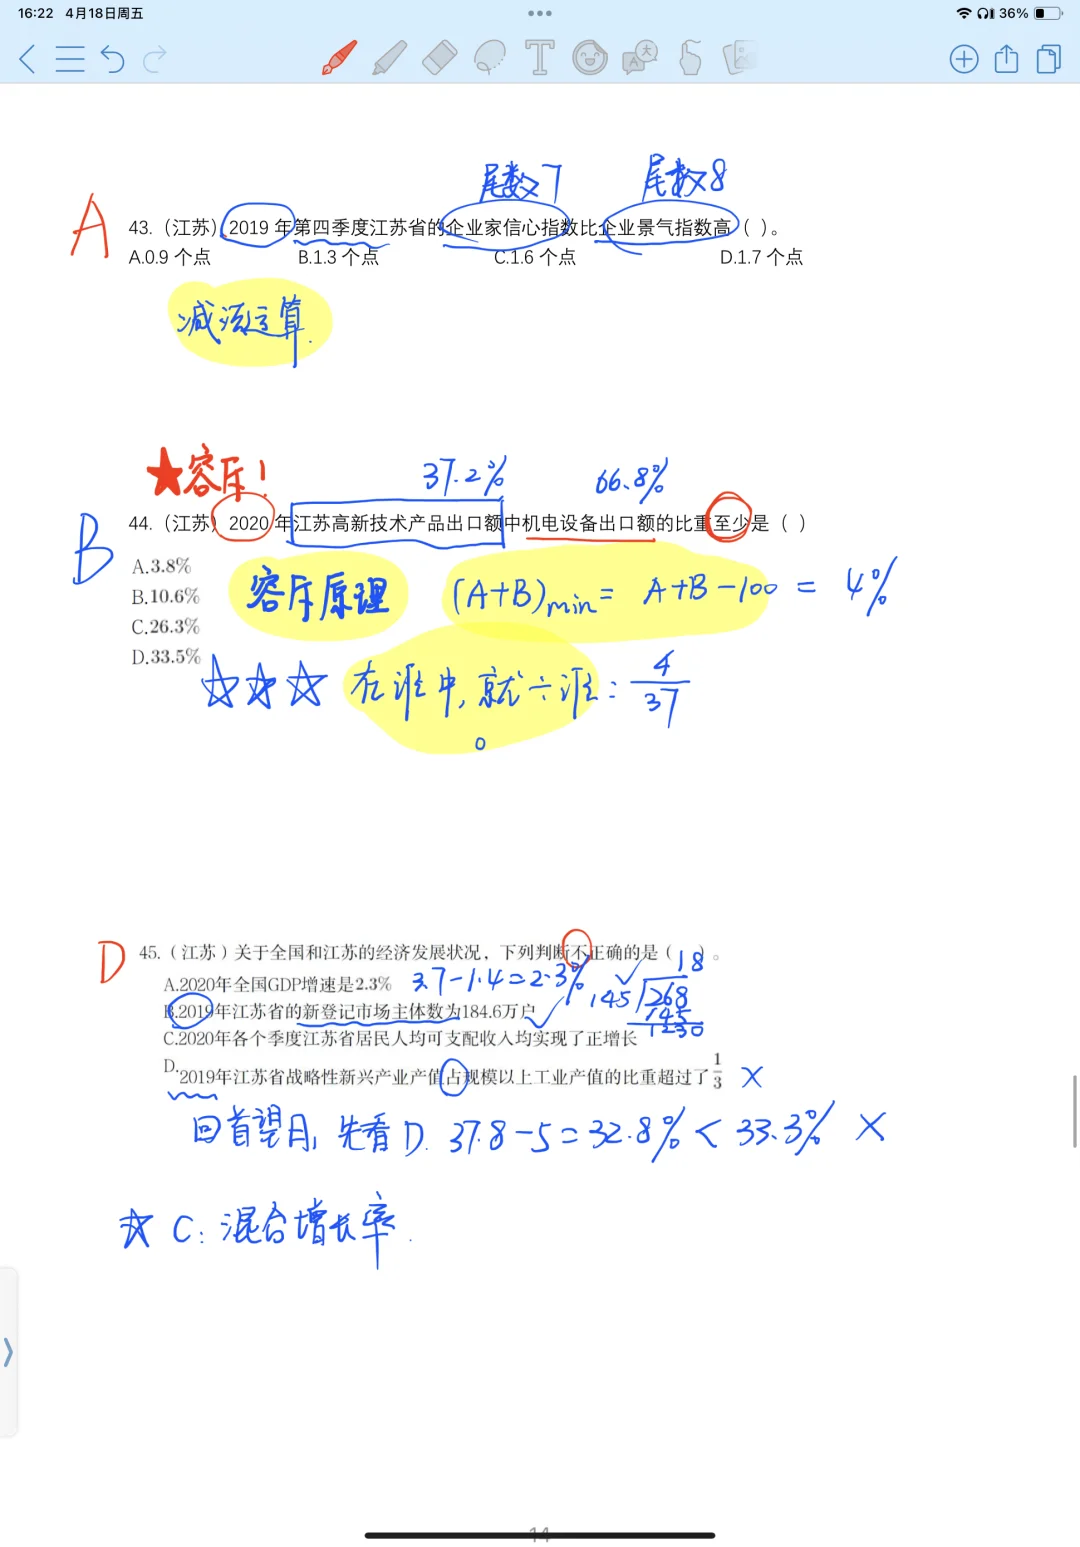 16:22 4月18日周五
36%
尾数7 尾数8
A
43.（江苏）2019 年第四季度江苏省的企业家信心指数比企业景气指数高（ ）。
A.0.9 个点 B.1.3 个点 C.1.6 个点 D.1.7 个点
减法运算.
★容斥！
37.2% 66.8%
B
44.（江苏）2020 年江苏高新技术产品出口额中机电设备出口额的比重至少是（ ）
A.3.8%
B.10.6%
C.26.3%
D.33.5%
容斥原理 (A+B)min = A+B-100 = 4%
☆☆☆ 在谁中,就÷谁: 4/37
D
45.（江苏）关于全国和江苏的经济发展状况，下列判断不正确的是（ ）。
A.2020年全国GDP增速是2.3% 3.7-1.4=2.3% ✓
18
145 268
145
1230
B.2019年江苏省的新登记市场主体数为184.6万户 ✓
C.2020年各个季度江苏省居民人均可支配收入均实现了正增长
D.2019年江苏省战略性新兴产业产值占规模以上工业产值的比重超过了1/3 ×
回首望月,先看D. 37.8-5=32.8%<33.3% ×
☆ C:混合增长率.
14